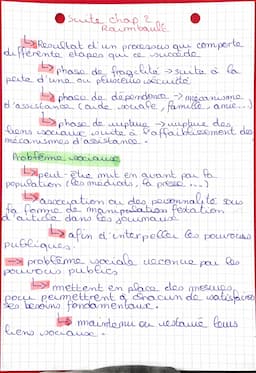 Suite chap 2
Raimbault
Résultat d'un processus qui comporte
différente étapes qui ce succède
phase de fragilité → suite à la
perte d'une ou plusieurs sécurité
phase de dépendance → mécanisme
d'assistance (aide sociale, famille, amie...)
phase de rupture → rupture des
liens sociaux suite à l'affaiblissement des
mécanismes d'assistance.
Problème sociaux
peut-être mut en avant par la
population (les médiats, la presse ...)
association ou des personnalité sous
la forme de manipulation
d'article dans les journaux
afin d'interpeller les pouvoirs
publiques.
problème sociale reconnue par les
pouvoirs publics
mettent en place des mesures
pour permettrent à chacun de satisfaires
ses besoins fondamentaux.
maintenu ou restauré leurs
liens sociaux.